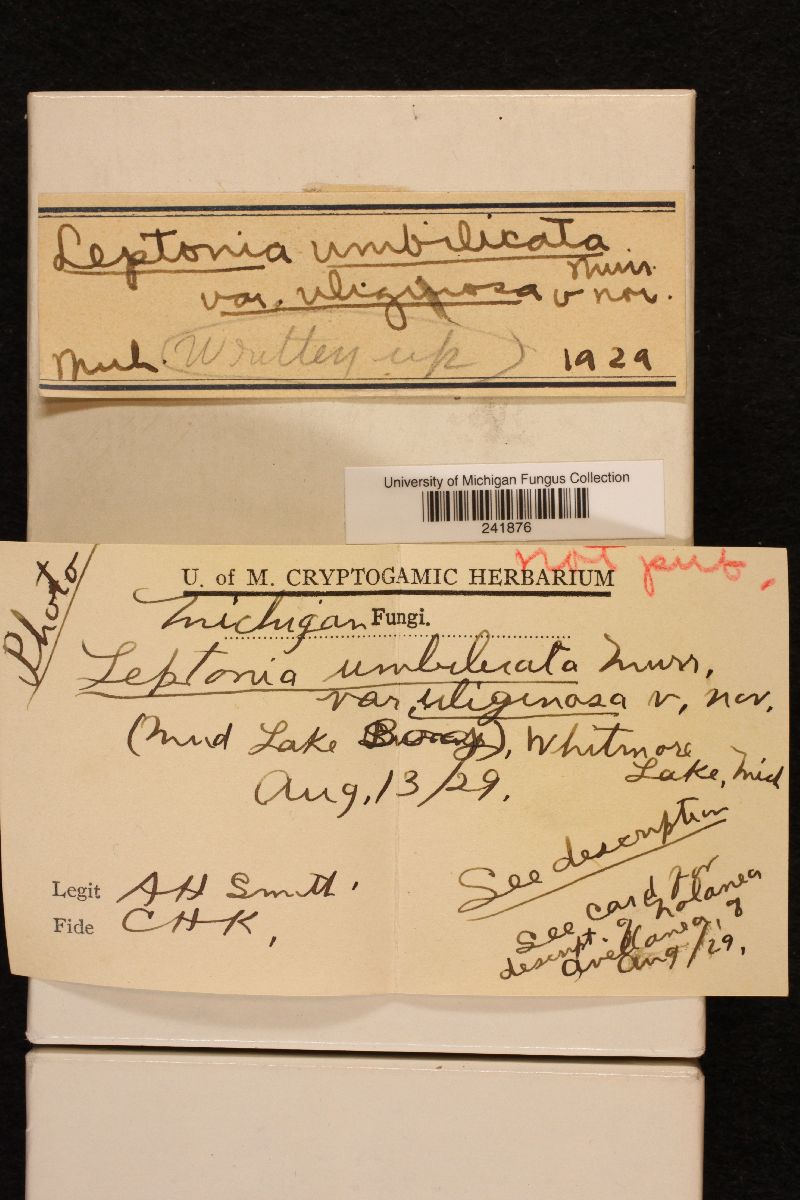 Leptonia umbilicata
Murr.
var. uliginosa v nov.
Mich. Written up 1929
University of Michigan Fungus Collection
241876
not pub.
Photo
U. of M. CRYPTOGAMIC HERBARIUM
Michigan Fungi.
Leptonia umbilicata Murr.
var. uliginosa v. nov.
(Mud Lake Bog), Whitmore
Lake, Mich
Aug. 13/29.
See description
Legit AH Smith.
Fide CHK.
See card for
descript. of Nolanea
avellanea, of
Aug /29.